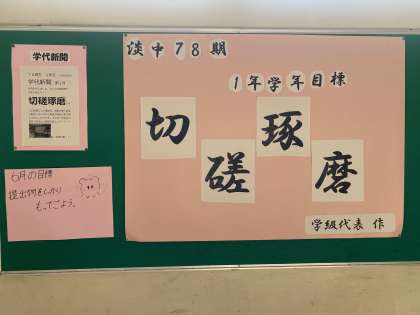 学代新聞
学代新聞
切磋琢磨
6月の目標
提出物をしっかり
もってこよう。
淡中78期
1年学年目標
切磋琢磨
学級代表 作